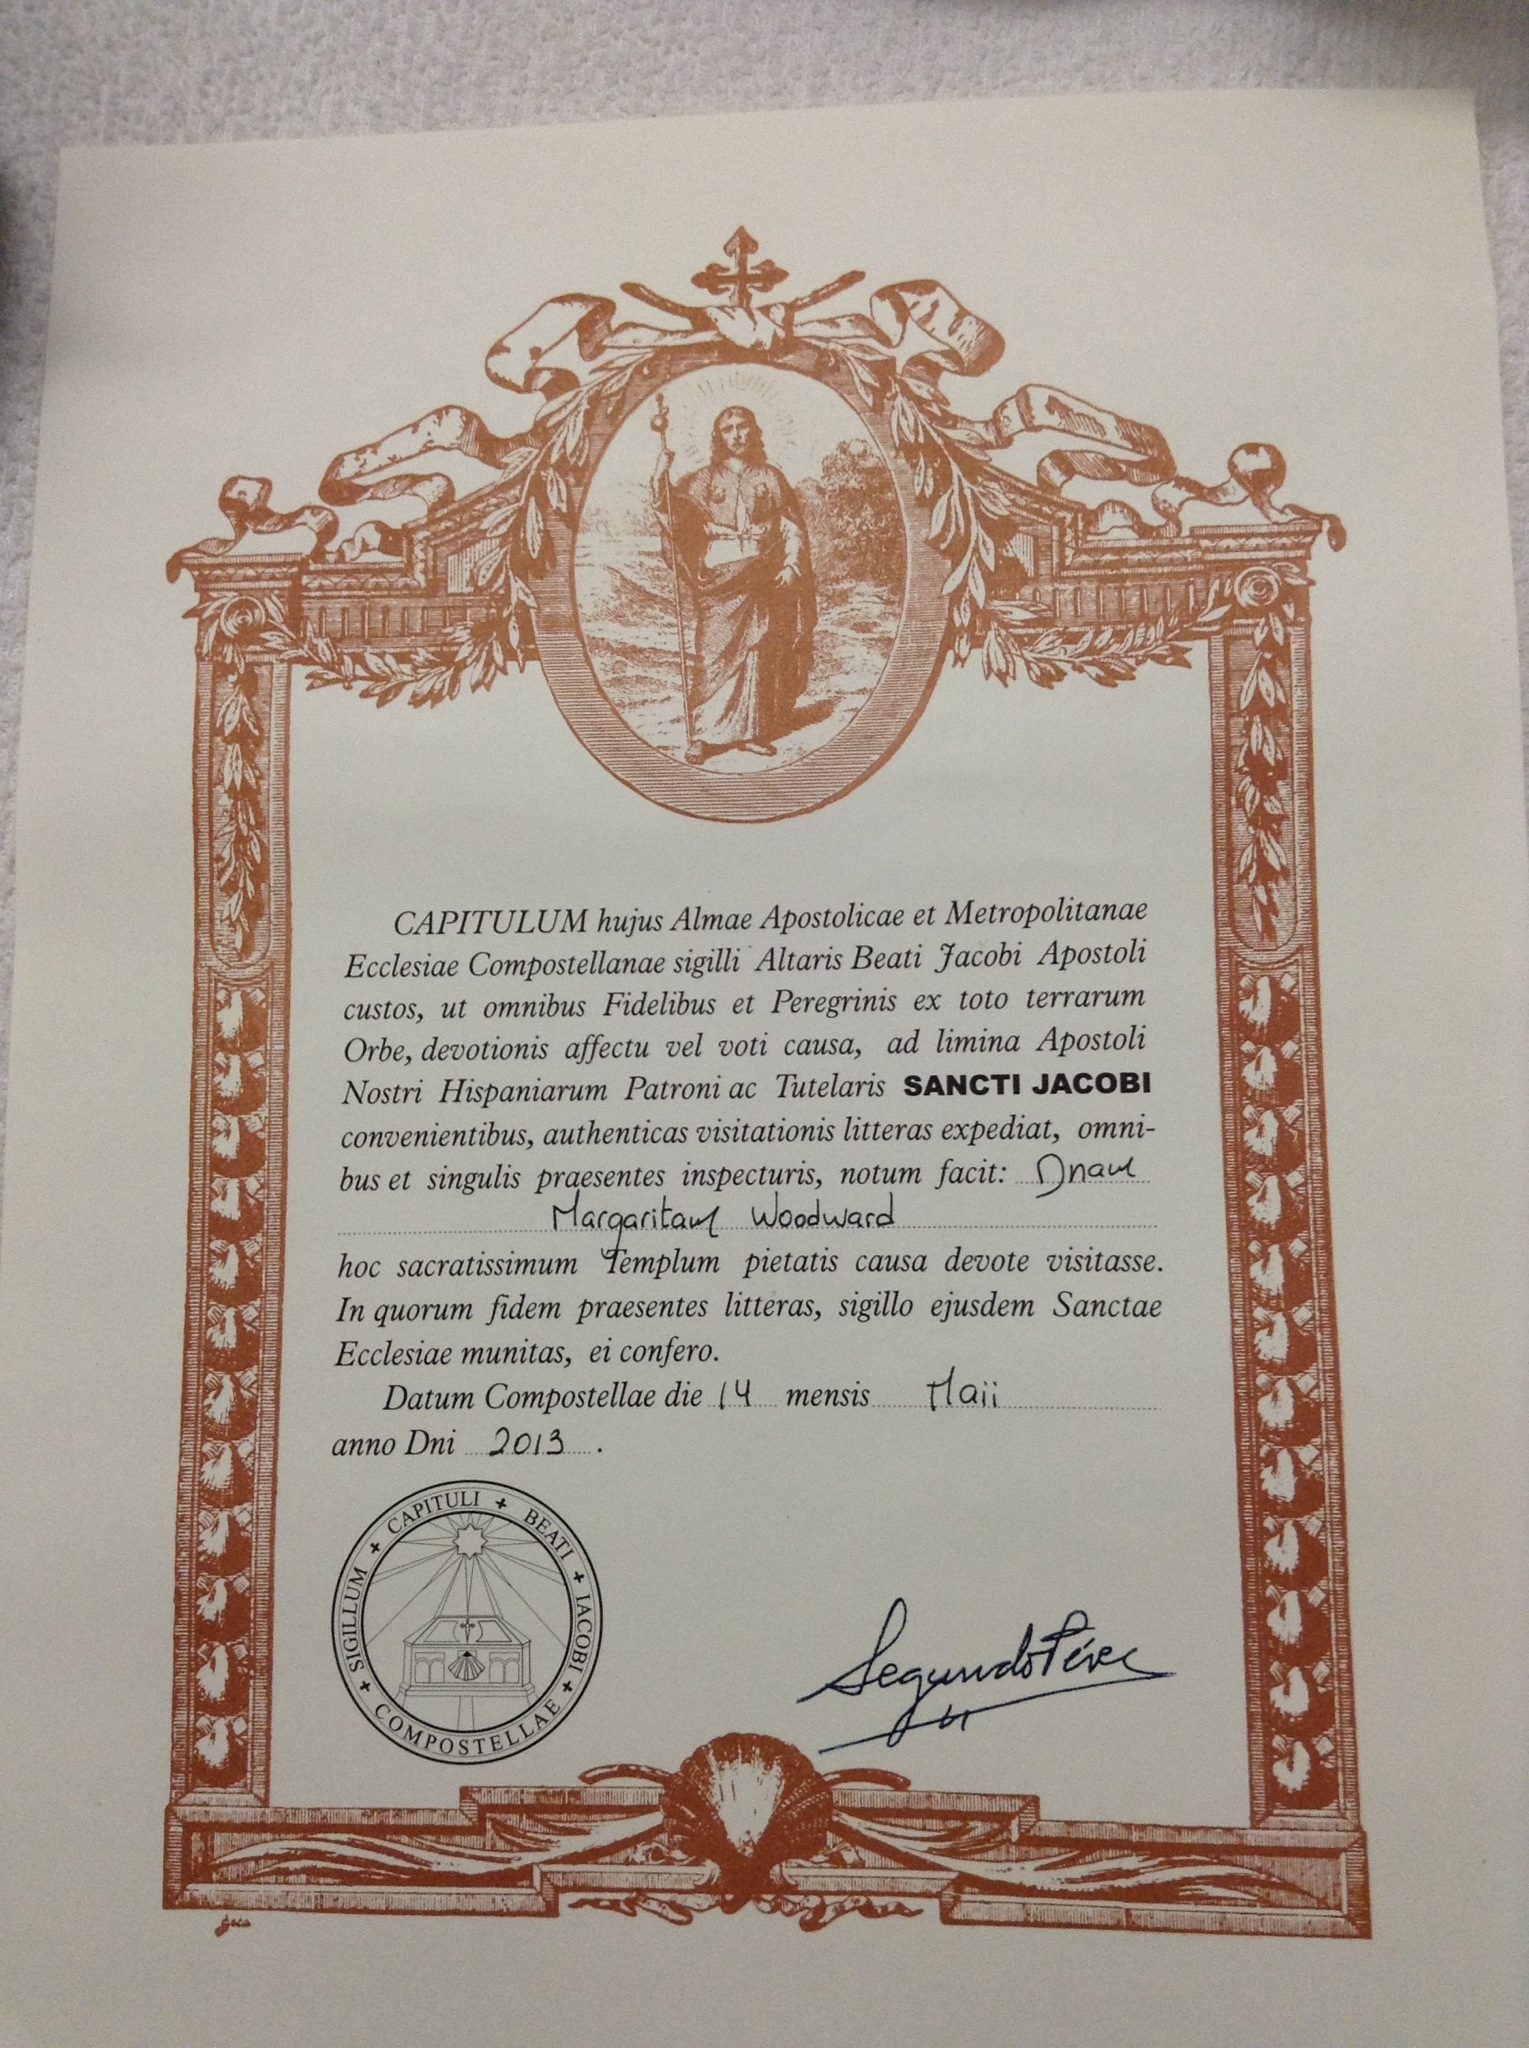 CAPITULUM hujus Almae Apostolicae et Metropolitanae
Ecclesiae Compostellanae sigilli Altaris Beati Jacobi Apostoli
custos, ut omnibus Fidelibus et Peregrinis ex toto terrarum
Orbe, devotionis affectu vel voti causa, ad limina Apostoli
Nostri Hispaniarum Patroni ac Tutelaris SANCTI JACOBI
convenientibus, authenticas visitationis litteras expediat, omni-
bus et singulis praesentes inspecturis, notum facit: Dnam
Margaritam Woodward
hoc sacratissimum Templum pietatis causa devote visitasse.
In quorum fidem praesentes litteras, sigillo ejusdem Sanctae
Ecclesiae munitas, ei confero.
Datum Compostellae die 14 mensis Maii
anno Dni 2013.
SIGILLUM + CAPITULI + BEATI + IACOBI + COMPOSTELLAE +
Segundo Pérez